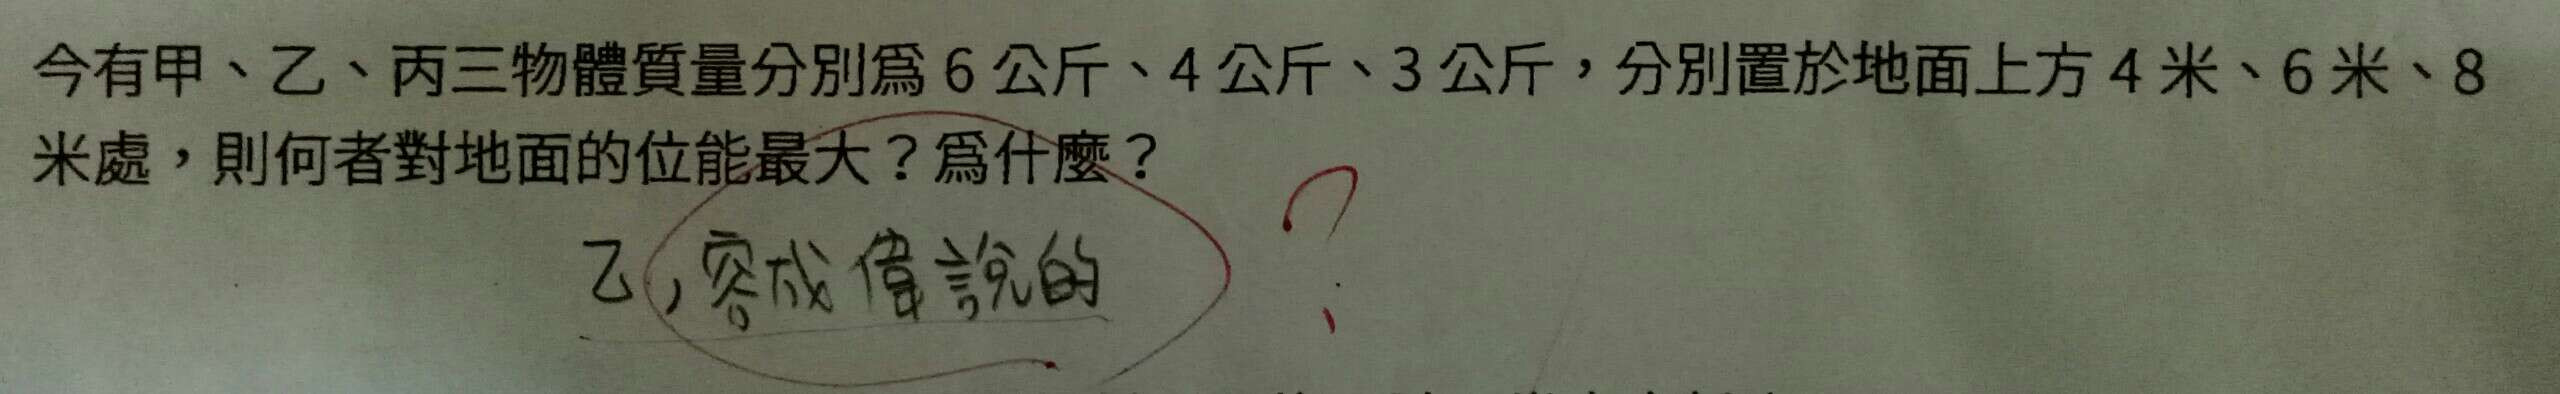 今有甲、乙、丙三物體質量分別爲 6 公斤、4 公斤、3 公斤，分別置於地面上方 4 米、6 米、8
米處，則何者對地面的位能最大？爲什麼？
乙，容成偉說的 ?